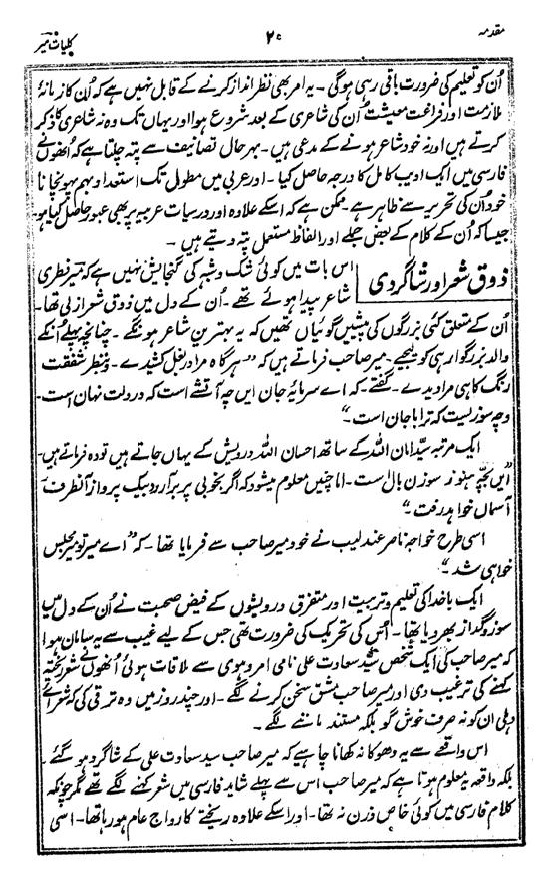 مقدمہ
۲۰
کلیات میر
اُن کو تعلیم کی ضرورت باقی رہی ہوگی ۔ یہ امر بھی نظر انداز کرنے کے قابل نہیں ہے کہ اُن کا زمانۂ
ملازمت اور فراغت معیشت اُن کی شاعری کے بعد شروع ہوا اور یہاں تک وہ نہ شاعری کا ذکر
کرتے ہیں اور نہ خود شاعر ہونے کے مدعی ہیں ۔ بہرحال تصانیف سے پتہ چلتا ہے کہ اُنھوں نے
فارسی میں ایک ادیب کامل کا درجہ حاصل کیا ۔ اور عربی میں مطول تک استعداد بہم پہونچانا
خود اُن کی تحریر سے ظاہر ہے ۔ ممکن ہے کہ اسکے علاوہ اور درسیات عربیہ پر بھی عبور حاصل کیا ہو
جیسا کہ اُن کے کلام کے بعض جملے اور الفاظ مستعمل پتہ دیتے ہیں ۔
ذوق شعر اور شاگردی
اس بات میں کوئی شک و شبہ کی گنجایش نہیں ہے کہ میر فطری
شاعر پیدا ہوئے تھے ۔ اُن کے دل میں ذوق شعر ازلی تھا ۔
اُن کے متعلق کئی بزرگوں کی پیشیں گوئیاں تھیں کہ یہ بہترین شاعر ہونگے ۔ چنانچہ پہلے اُنکے
والد بزرگوار ہی کو لیجیے ۔ میر صاحب فرماتے ہیں کہ "ہرگاہ مرا در بغل کشیدے ۔ و بنظر شفقت
رنگ کاہی مرا دیدے ۔ گفتے ۔ کہ اے سرمایۂ جان ایں چہ آتشے است کہ در دلت نہان است ۔
و چہ سوزیست کہ ترا با جان است ۔"
ایک مرتبہ سید امان اللہ کے ساتھ احسان اللہ درویش کے یہاں جاتے ہیں تو وہ فرماتے ہیں ۔
"ایں بچہ ہنوز سوزن بال است ۔ اما چنیں معلوم میشود کہ اگر بخوبی پر برآرد بیک پرواز آنطرف
آسماں خواہد رفت ۔"
اسی طرح خواجہ ناصر عندلیب نے خود میر صاحب سے فرمایا تھا ۔ کہ "اے میر تو میر مجلس
خواہی شد ۔"
ایک باخدا کی تعلیم و تربیت اور متفرق درویشوں کے فیض صحبت نے اُن کے دل میں
سوز و گداز بھر دیا تھا ۔ اُس کی تحریک کی ضرورت تھی جس کے لیے غیب سے یہ سامان ہوا
کہ میر صاحب کی ایک شخص سید سعادت علی نامی امروہوی سے ملاقات ہوئی اُنھوں نے شعر ریختہ
کہنے کی ترغیب دی اور میر صاحب مشق سخن کرنے لگے ۔ اور چند روز میں وہ ترقی کی کہ شعرائے
دہلی ان کو نہ صرف خوش گو بلکہ مستند ماننے لگے ۔
اس واقعے سے یہ دھوکا نہ کھانا چاہیے کہ میر صاحب سید سعادت علی کے شاگرد ہو گئے ۔
بلکہ واقعہ یہ معلوم ہوتا ہے کہ میر صاحب اس سے پہلے شاید فارسی میں شعر کہنے لگے تھے مگر چونکہ
کلام فارسی میں کوئی خاص وزن نہ تھا ۔ اور اسکے علاوہ ریختے کا رواج عام ہو رہا تھا ۔ اسی